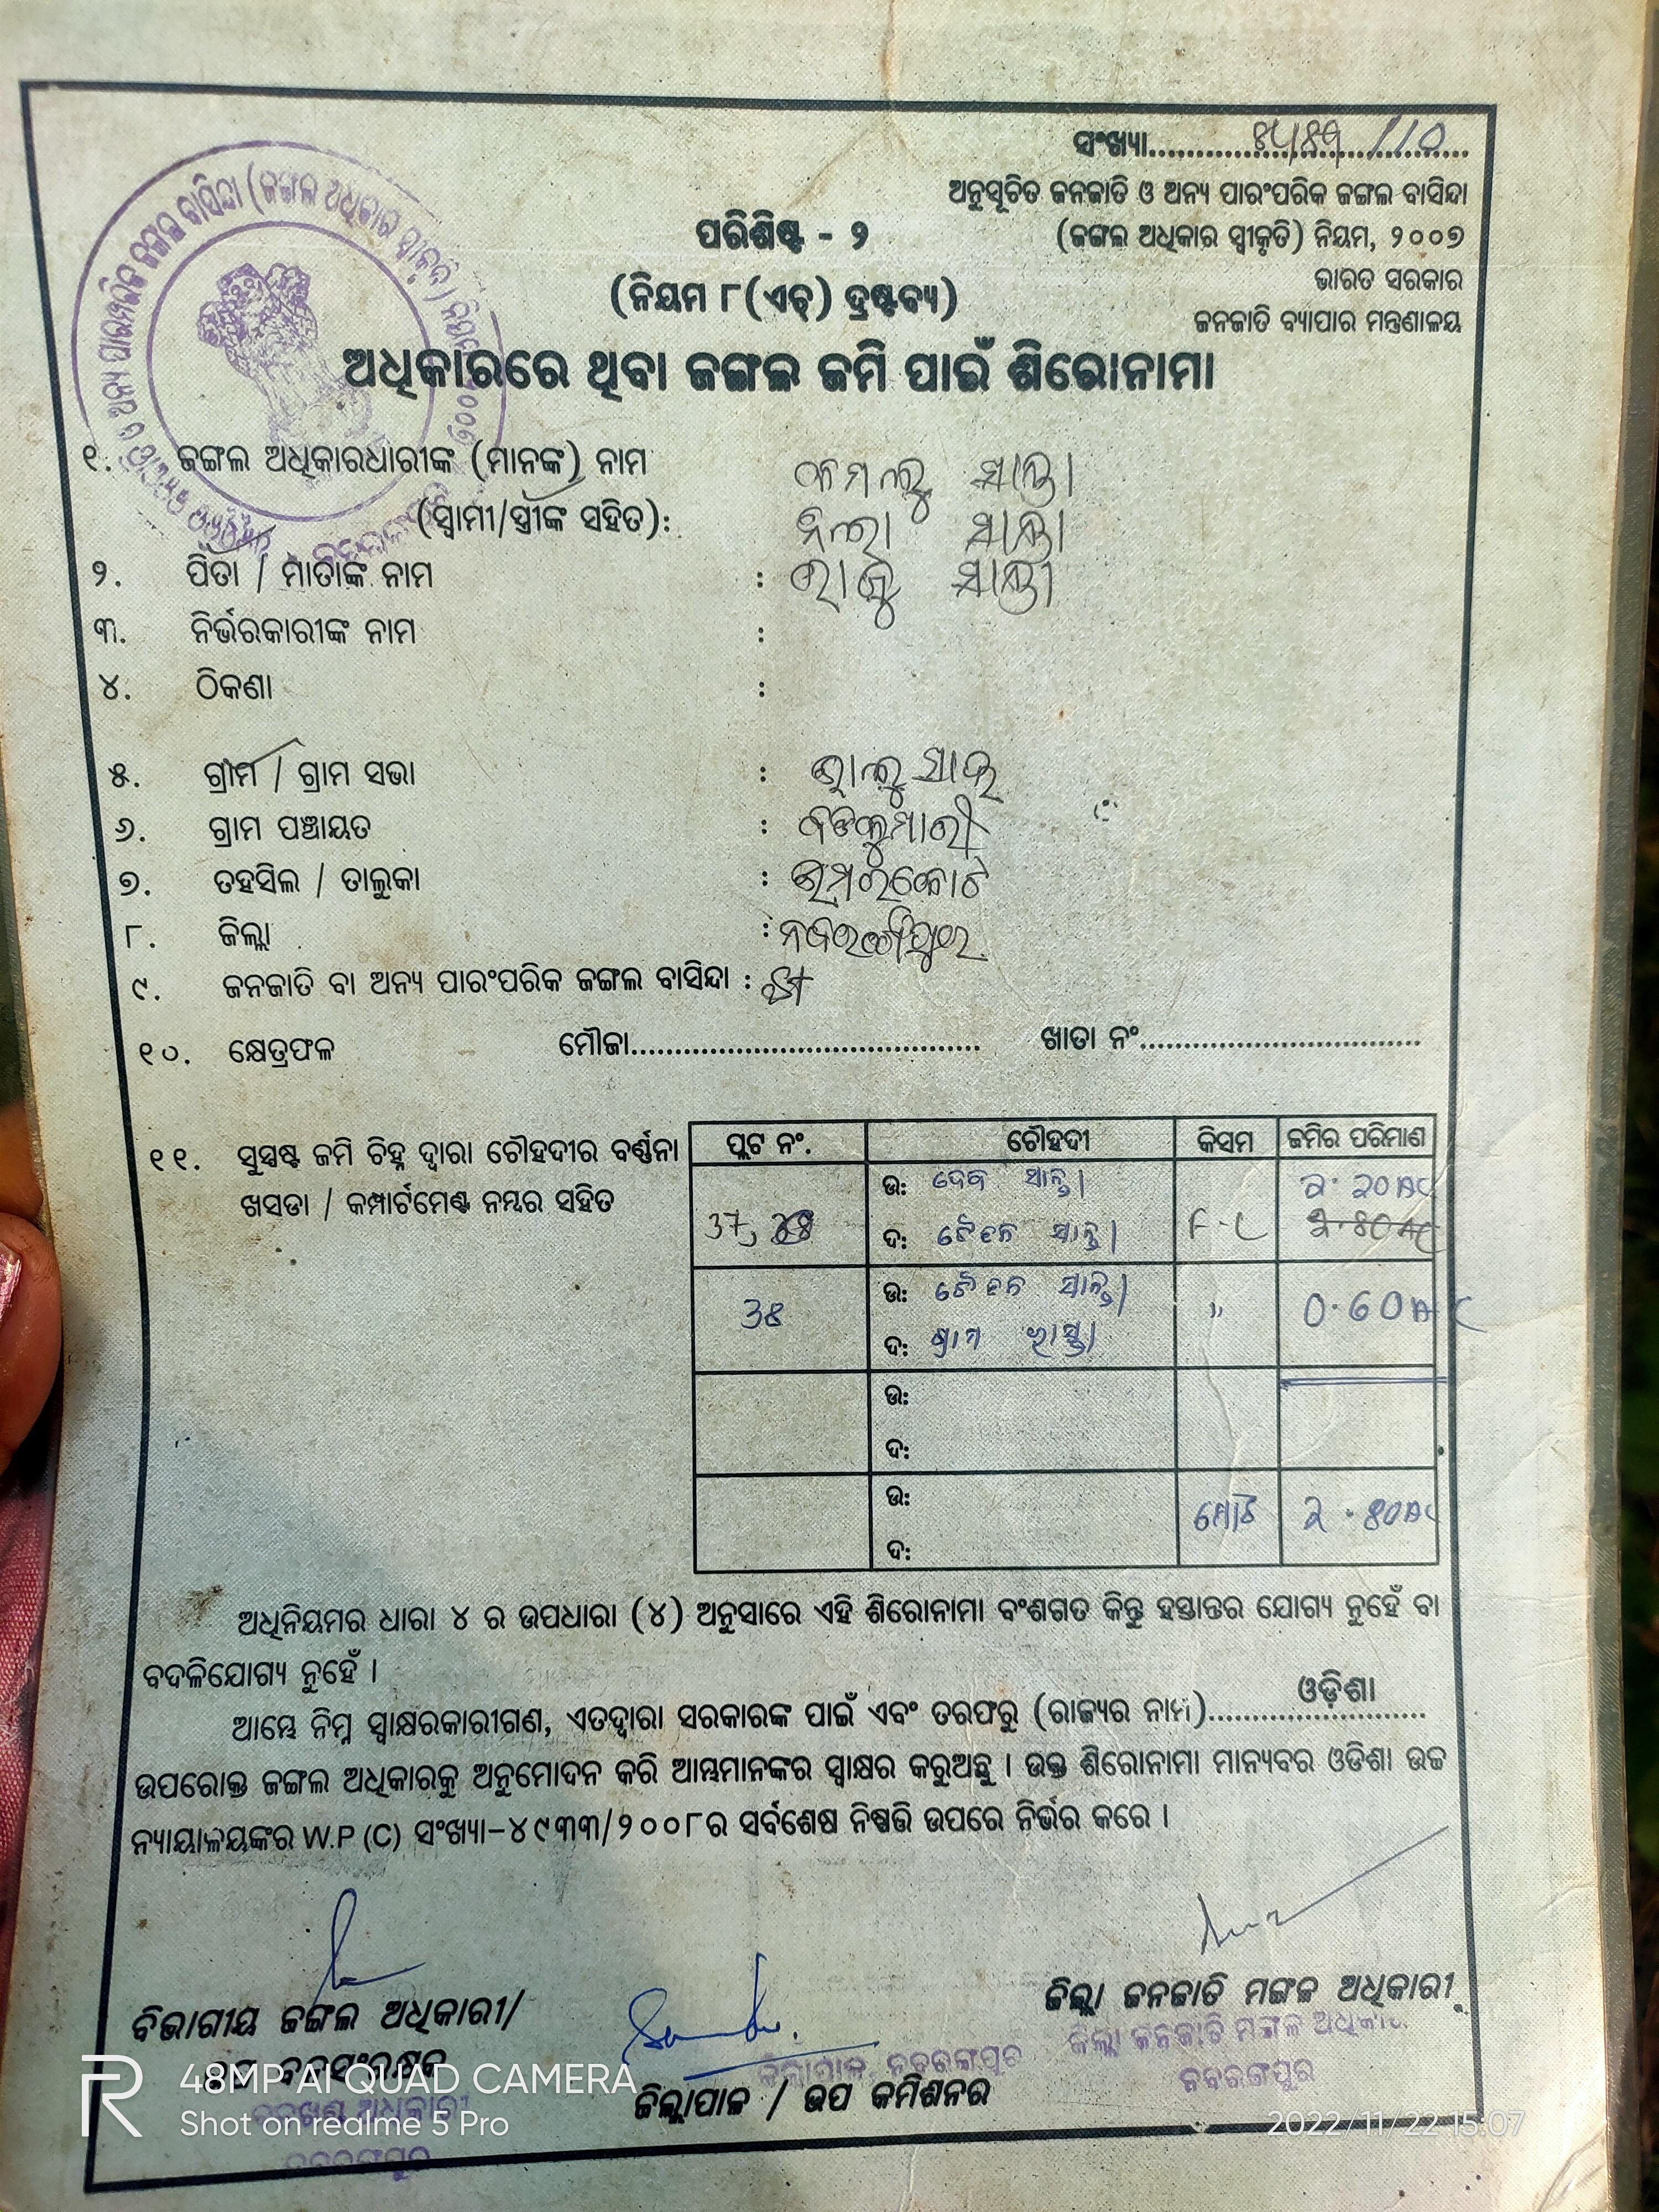 ସଂଖ୍ୟା
ଅନୁସୂଚିତ ଜନଜାତି ଓ ଅନ୍ୟ ପାରଂପରିକ ଜଙ୍ଗଲ ବାସିନ୍ଦା
(ଜଙ୍ଗଲ ଅଧିକାର ସ୍ୱୀକୃତି) ନିୟମ, ୨୦୦୭
ଭାରତ ସରକାର
ଜନଜାତି ବ୍ୟାପାର ମନ୍ତ୍ରଣାଳୟ
ପରିଶିଷ୍ଟ - ୨
(ନିୟମ ୮(ଏଚ୍) ଦ୍ରଷ୍ଟବ୍ୟ)
ଅଧିକାରରେ ଥିବା ଜଙ୍ଗଲ ଜମି ପାଇଁ ଶିରୋନାମା
୧. ଜଙ୍ଗଲ ଅଧିକାରଧାରୀଙ୍କ (ମାନଙ୍କ) ନାମ
(ସ୍ୱାମୀ/ସ୍ତ୍ରୀଙ୍କ ସହିତ):
୨. ପିତା / ମାତାଙ୍କ ନାମ :
୩. ନିର୍ଭରକାରୀଙ୍କ ନାମ :
୪. ଠିକଣା :
୫. ଗ୍ରାମ / ଗ୍ରାମ ସଭା :
୬. ଗ୍ରାମ ପଞ୍ଚାୟତ : ବଡକୁମାରୀ
୭. ତହସିଲ / ତାଲୁକା : ଉମରକୋଟ
୮. ଜିଲ୍ଲା : ନବରଙ୍ଗପୁର
୯. ଜନଜାତି ବା ଅନ୍ୟ ପାରଂପରିକ ଜଙ୍ଗଲ ବାସିନ୍ଦା : ST
୧୦. କ୍ଷେତ୍ରଫଳ ମୌଜା........................................ ଖାତା ନଂ................................
୧୧. ସୁସ୍ପଷ୍ଟ ଜମି ଚିହ୍ନ ଦ୍ୱାରା ଚୌହଦୀର ବର୍ଣ୍ଣନା
ଖସଡା / କମ୍ପାର୍ଟମେଣ୍ଟ ନମ୍ବର ସହିତ
ପ୍ଲଟ ନଂ. ଚୌହଦୀ କିସମ ଜମିର ପରିମାଣ
ଉ: ସାନ୍ତା 2.20 AC
37, ଦ: ସାନ୍ତା F-L
ଉ: ସାନ୍ତା
38 ଦ: ଗ୍ରାମ ରାସ୍ତା " 0.60 AC
ଉ:
ଦ:
ଉ:
ଦ: ମୋଟ ୨.୫0 AC
ଅଧିନିୟମର ଧାରା ୪ ର ଉପଧାରା (୪) ଅନୁସାରେ ଏହି ଶିରୋନାମା ବଂଶଗତ କିନ୍ତୁ ହସ୍ତାନ୍ତର ଯୋଗ୍ୟ ନୁହେଁ ବା
ବଦଳିଯୋଗ୍ୟ ନୁହେଁ ।
ଆମ୍ଭେ ନିମ୍ନ ସ୍ୱାକ୍ଷରକାରୀଗଣ, ଏତଦ୍ଦ୍ୱାରା ସରକାରଙ୍କ ପାଇଁ ଏବଂ ତରଫରୁ (ରାଜ୍ୟର ନାମ)........ଓଡ଼ିଶା........
ଉପରୋକ୍ତ ଜଙ୍ଗଲ ଅଧିକାରକୁ ଅନୁମୋଦନ କରି ଆମ୍ଭମାନଙ୍କର ସ୍ୱାକ୍ଷର କରୁଅଛୁ । ଉକ୍ତ ଶିରୋନାମା ମାନ୍ୟବର ଓଡିଶା ଉଚ୍ଚ
ନ୍ୟାୟାଳୟଙ୍କର W.P (C) ସଂଖ୍ୟା-୪୯୩୩/୨୦୦୮ର ସର୍ବଶେଷ ନିଷ୍ପତ୍ତି ଉପରେ ନିର୍ଭର କରେ ।
ବିଭାଗୀୟ ଜଙ୍ଗଲ ଅଧିକାରୀ/
ଉପ ବନସଂରକ୍ଷକ
ଜିଲ୍ଲାପାଳ, ନବରଙ୍ଗପୁର
ଜିଲ୍ଲାପାଳ / ଉପ କମିଶନର
ଜିଲ୍ଲା ଜନଜାତି ମଙ୍ଗଳ ଅଧିକାରୀ
ଜିଲ୍ଲା ଜନଜାତି ମଙ୍ଗଳ ଅଧିକାରୀ
ନବରଙ୍ଗପୁର
ବନଖଣ୍ଡ ଅଧିକାରୀ
ନବରଙ୍ଗପୁର
48MP AI QUAD CAMERA
Shot on realme 5 Pro
2022/11/22 15:07